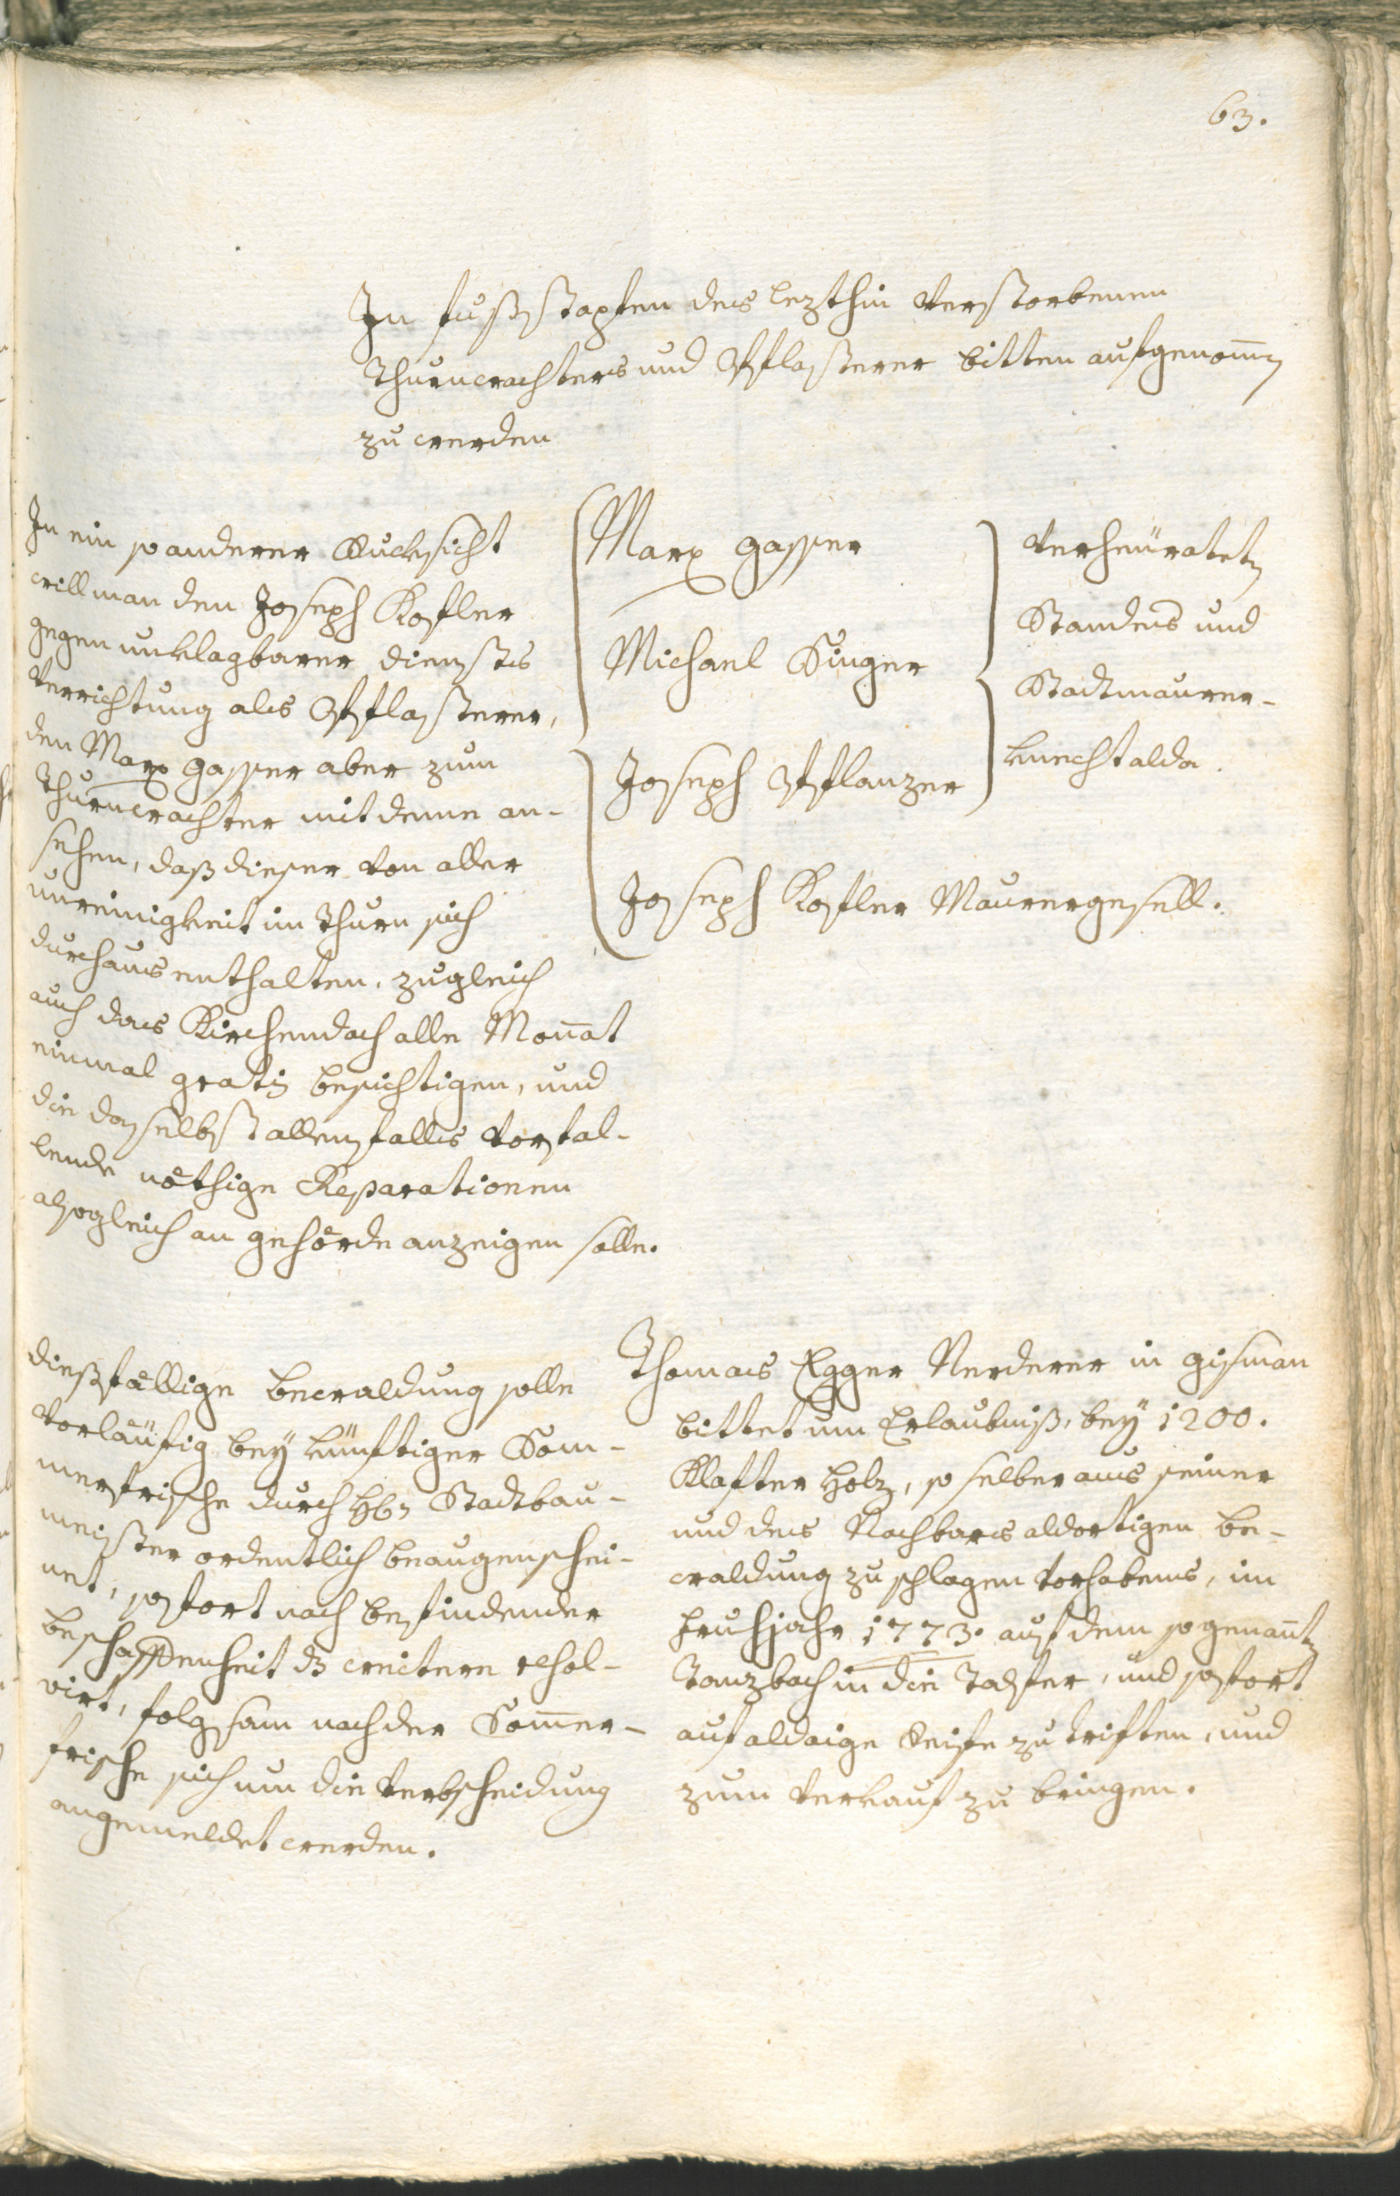 63.
In fuß stapfen des lezthin verstorbenen
Thurnwachters und Pflasterer bitten aufgenom̄en
zu werden
In ein so anderer Rucksicht
will man den Joseph Kofler
gegen unklagbarer dienstes
verrichtung als Pflasterer,
den Marx Gasser aber zum
Thurnwachter mit deme an-
sehen, daß dieser von aller
unreinigkeit im Thurn sich
durchaus enthalten, zugleich
auch das Kirchendach alle Monnat
einmal gratis besichtigen, und
die daselbst allenfalls vorfal-
lende nöthige Reparationen
alsogleich an gehörde anzeigen solle.
Marx Gasser
Michael Singer
Joseph Pflanzer
Joseph Kofler Maurergesell.
verheüratet
Standes und
Stadtmaurer-
knecht alda.
dießfällige bewaldung solle
vorläufig bey künftiger Som-
merfrische durch Stadtbau-
meister ordentlich beaugenschei-
net, sofort nach befindender
beschaffenheit dz weitere resol-
virt, folgsam nach der Som̄er-
frische sich um die Verbscheidung
angemeldet werden.
Thomas Egger Nerderer in gisman
bittet um Erlaubniß, bey 1200.
Klafter Holz, so selber aus seiner
und des Nachbars aldortigen be-
waldung zu schlagen vorhabens, im
fruhjahr 1773. auf dem so genan̄ten
Tanzbach in die Talfer, und sofort
auf aldaige Reife zu triften, und
zum verkauf zu bringen.